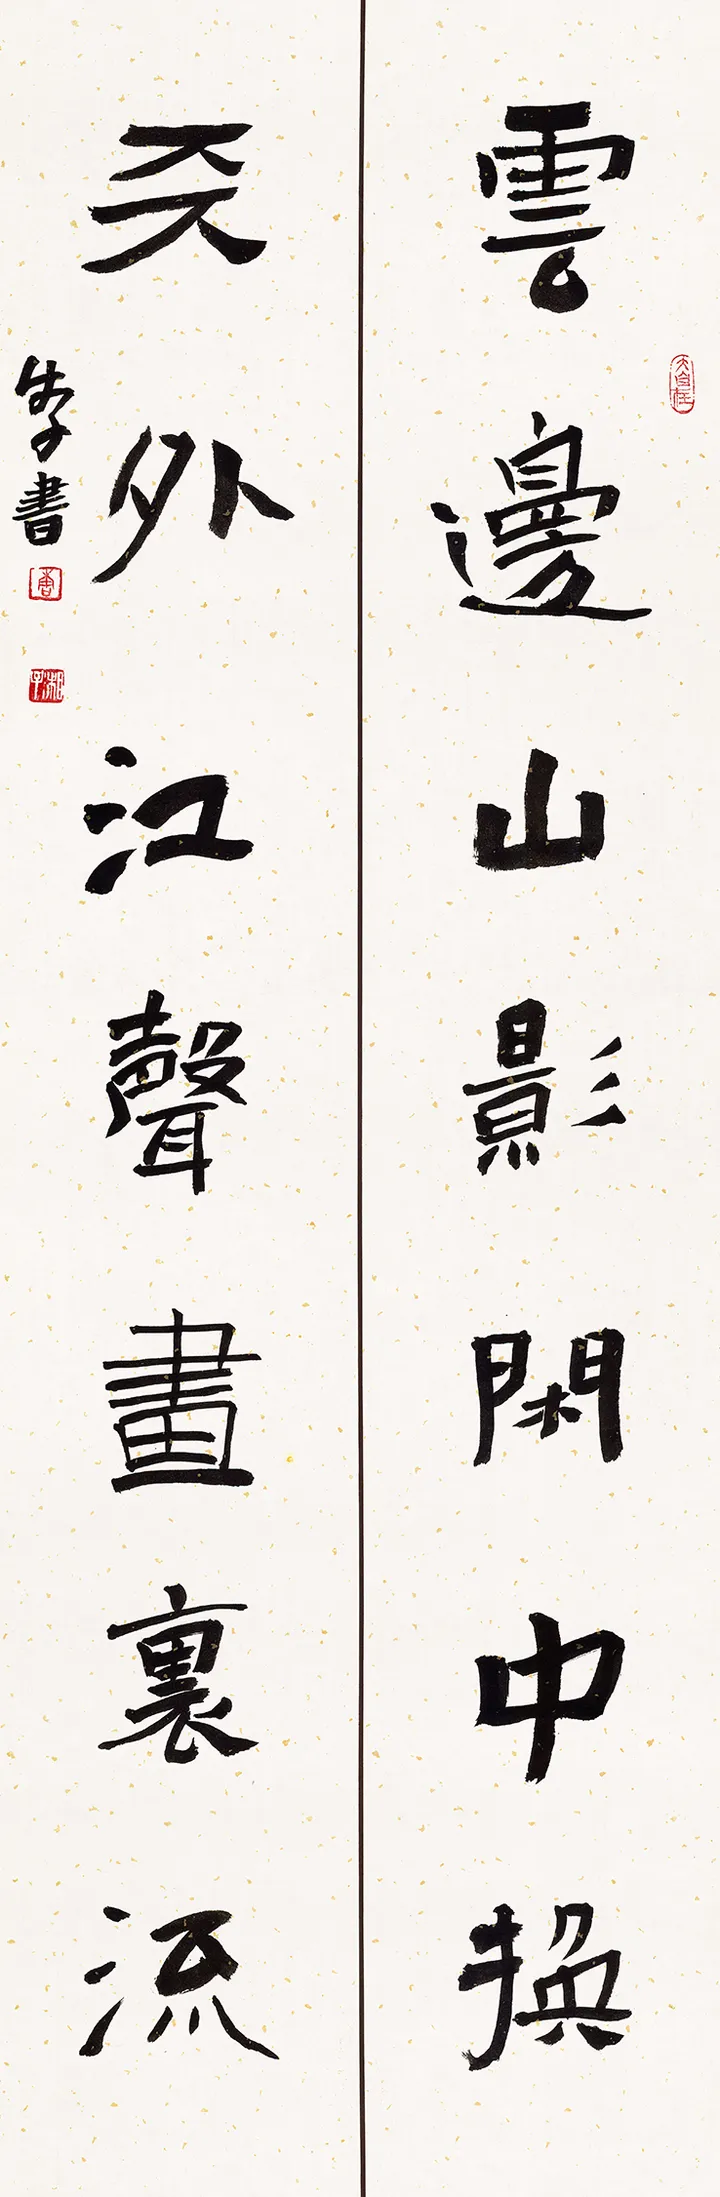 雲邊山影閑中換
天外江聲畫裏流